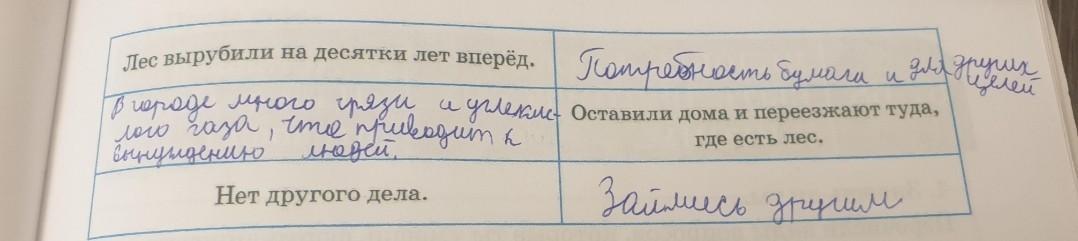 Лес вырубили на десятки лет вперёд.
Потребность бумаги и для других
целей
В городе много грязи и углекис-
лого газа, что приводит к
вынуждению людей.
Оставили дома и переезжают туда,
где есть лес.
Нет другого дела.
Займись другим